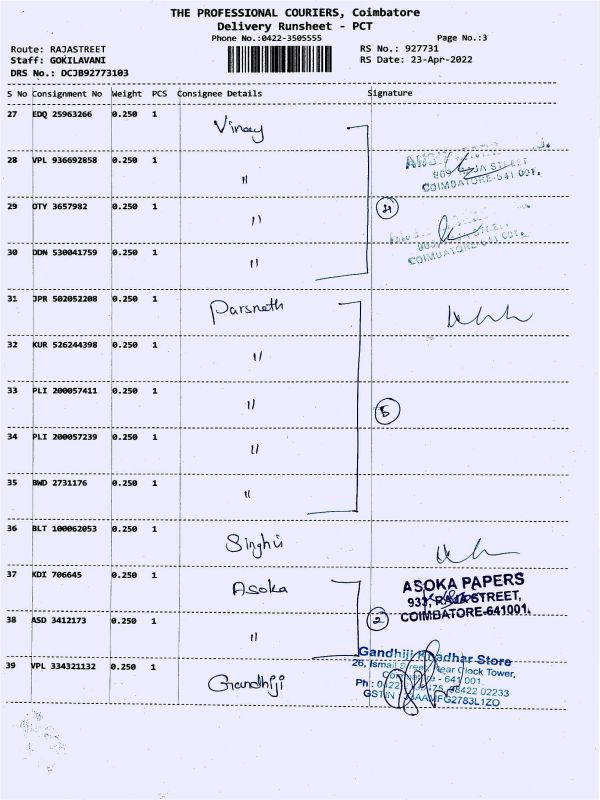 THE PROFESSIONAL COURIERS, Coimbatore
Delivery Runsheet - PCT
Phone No.:0422-3505555
Page No.:3
Route: RAJASTREET
RS No.: 927731
Staff: GOKILAVANI
RS Date: 23-Apr-2022
DRS No.: DCJB92773103
S No Consignment No Weight PCS Consignee Details Signature
27 EDQ 25963266 0.250 1 Vinay
28 VPL 936692858 0.250 1 "
STREET
COIMBATORE-641 001.
29 OTY 3657982 0.250 1 " 4
30 DDN 530041759 0.250 1 "
COIMBATORE-641 001.
31 JPR 502052208 0.250 1 Parsnath
32 KUR 526244398 0.250 1 "
33 PLI 200057411 0.250 1 " 5
34 PLI 200057239 0.250 1 "
35 BWD 2731176 0.250 1 "
36 BLT 100062053 0.250 1
37 KDI 706645 0.250 1 Asoka
ASOKA PAPERS
933, RAJA STREET,
COIMBATORE-641001.
38 ASD 3412173 0.250 1 " 2
39 VPL 334321132 0.250 1 Gandhiji
Gandhiji Khadhar Store
26, Ismail Street, Near Clock Tower,
Coimbatore - 641 001.
98422 02233